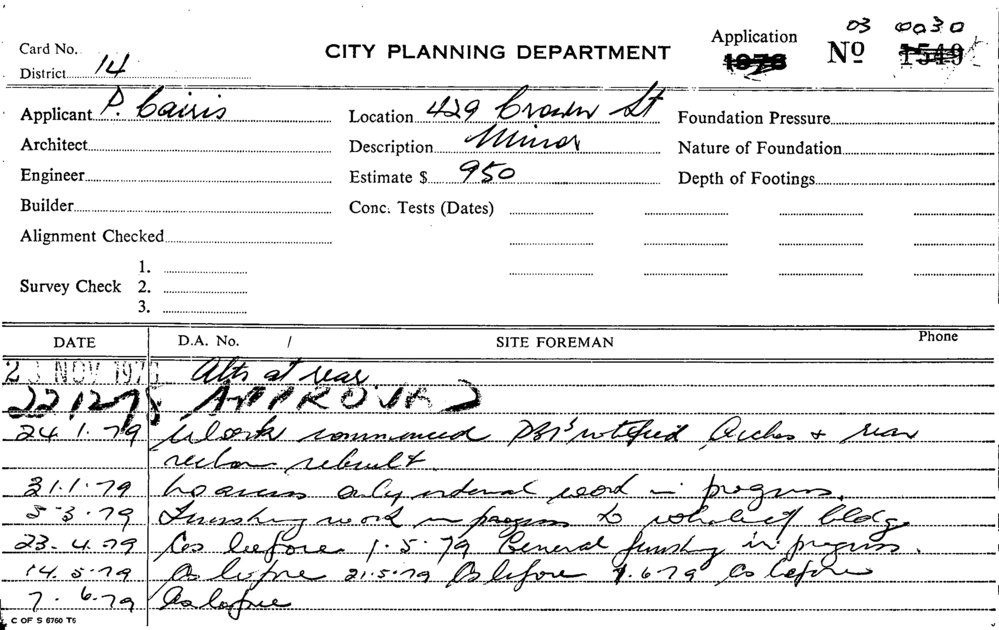 03 0030
Card No. CITY PLANNING DEPARTMENT Application 1978 Nº 1549
District 14
Applicant P. Cairis Location 429 Crown St Foundation Pressure
Architect Description Minor Nature of Foundation
Engineer Estimate $ 950 Depth of Footings
Builder Conc. Tests (Dates)
Alignment Checked
1.
Survey Check 2.
3.
DATE D.A. No. / SITE FOREMAN Phone
23 NOV 1978 Alts at rear
22.12.78 APPROVED
24.1.79 Work commenced notified Arches + rear
rebuilt.
31.1.79 No access only internal work in progress.
5.3.79 Finishing work in progress to whole of bldg
23.4.79 As before 1.5.79 General finishing in progress.
14.5.79 As before 21.5.79 As before 1.6.79 As before
7.6.79 As before
C OF S 6760 T5